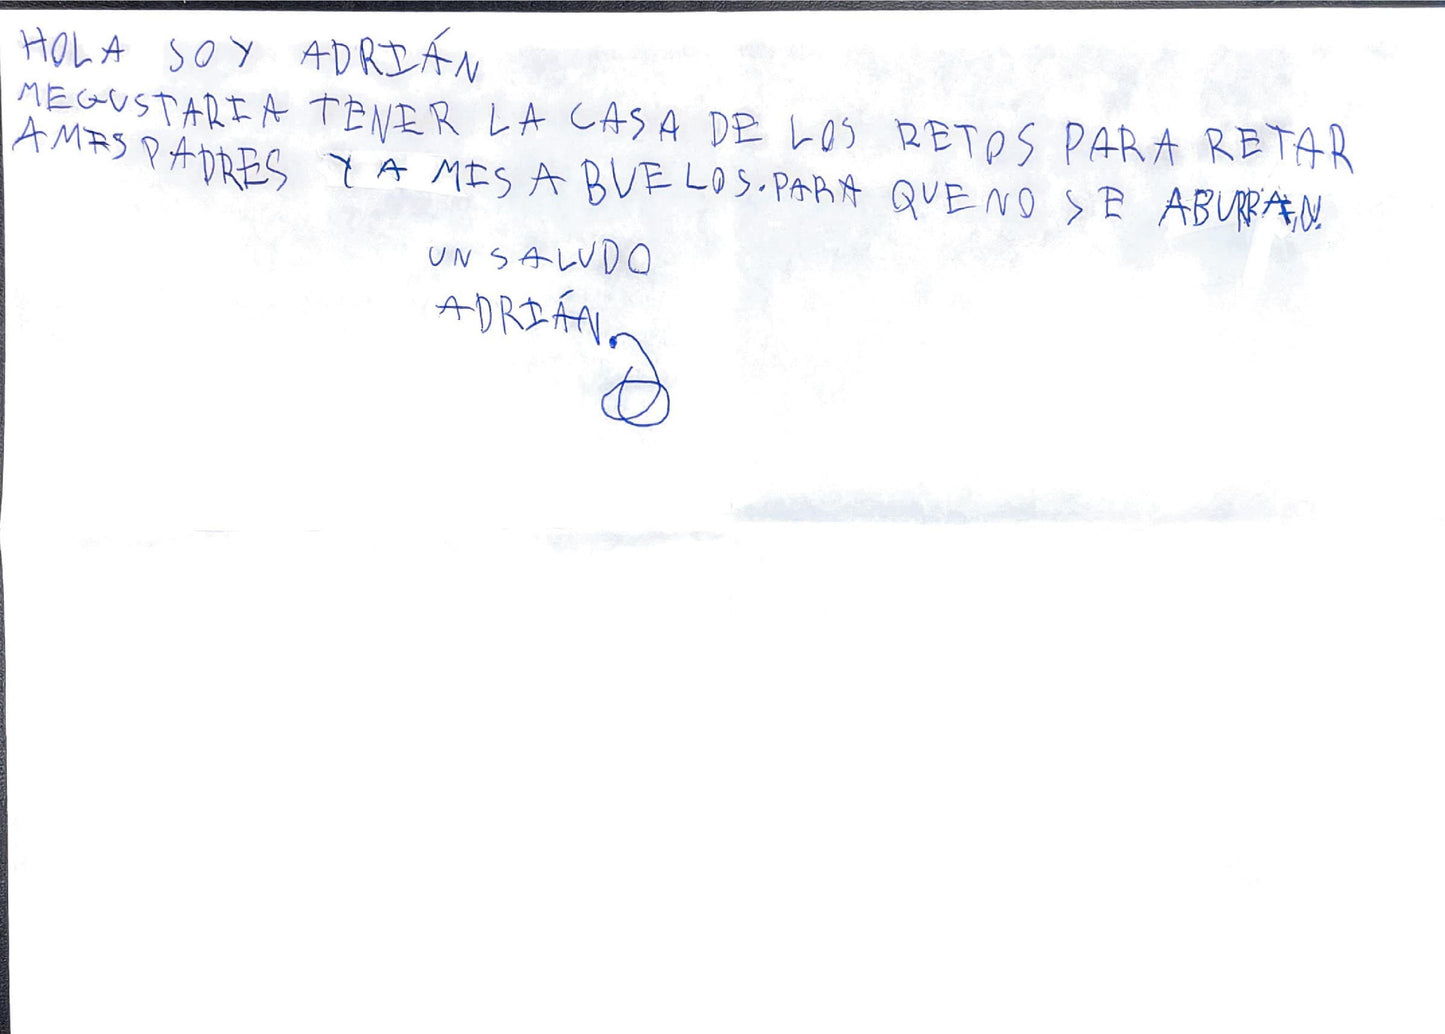 HOLA SOY ADRIÁN
ME GUSTARIA TENER LA CASA DE LOS RETOS PARA RETAR
A MIS PADRES Y A MIS ABUELOS. PARA QUE NO SE ABURRAN.
UN SALUDO
ADRIÁN.